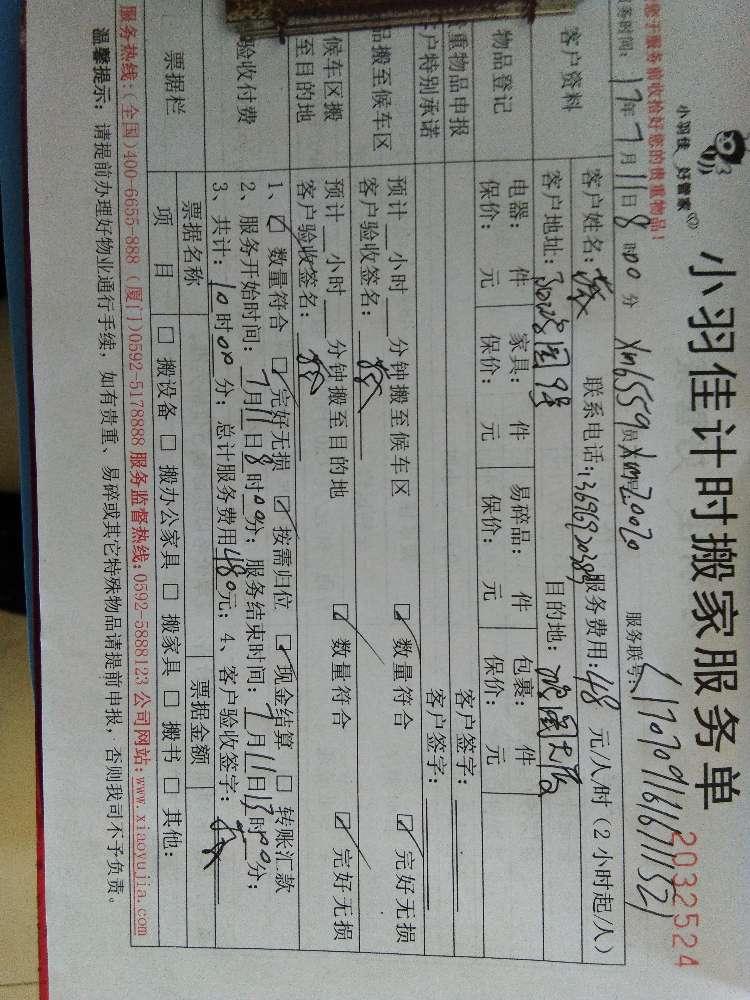 小羽佳计时搬家服务单
2032524
小羽佳 好管家
您于服务前收拾好您的贵重物品!
务时间: 17年7月11日8时00分 Xm6559 员 Xm20020 服务联号:
客户资料
客户姓名: 联系电话: 服务费用:48元/人/时(2小时起/人)
客户地址: 目的地:
物品登记
电器: 件 家具: 件 易碎品: 件 包裹: 件
保价: 元 保价: 元 保价: 元 保价: 元
重物品申报 客户签字:
户特别承诺 客户签字:
品搬至候车区
预计 小时 分钟搬至候车区 ☑ 数量符合 ☑ 完好无损
客户验收签名:
候车区搬至目的地
预计 小时 分钟搬至目的地 ☑ 数量符合 ☑ 完好无损
客户验收签名:
验收付费
1、☑ 数量符合 ☑ 完好无损 ☑ 按需归位 ☑ 现金结算 □ 转账汇款
2、服务开始时间:7月11日8时00分; 服务结束时间:7月11日13时00分;
3、共计:10时00分; 总计服务费用480元; 4、客户验收签字:
票据栏
票据名称 票据金额
项目 □ 搬设备 □ 搬办公家具 □ 搬家具 □ 搬书 □ 其他:
服务热线:(全国)400-6655-888 (厦门)0592-5178888 服务监督热线:0592-5888123 公司网站:www.xiaoyujia.com
温馨提示: 请提前办理好物业通行手续, 如有贵重、易碎或其它特殊物品请提前申报, 否则我司不予负责。